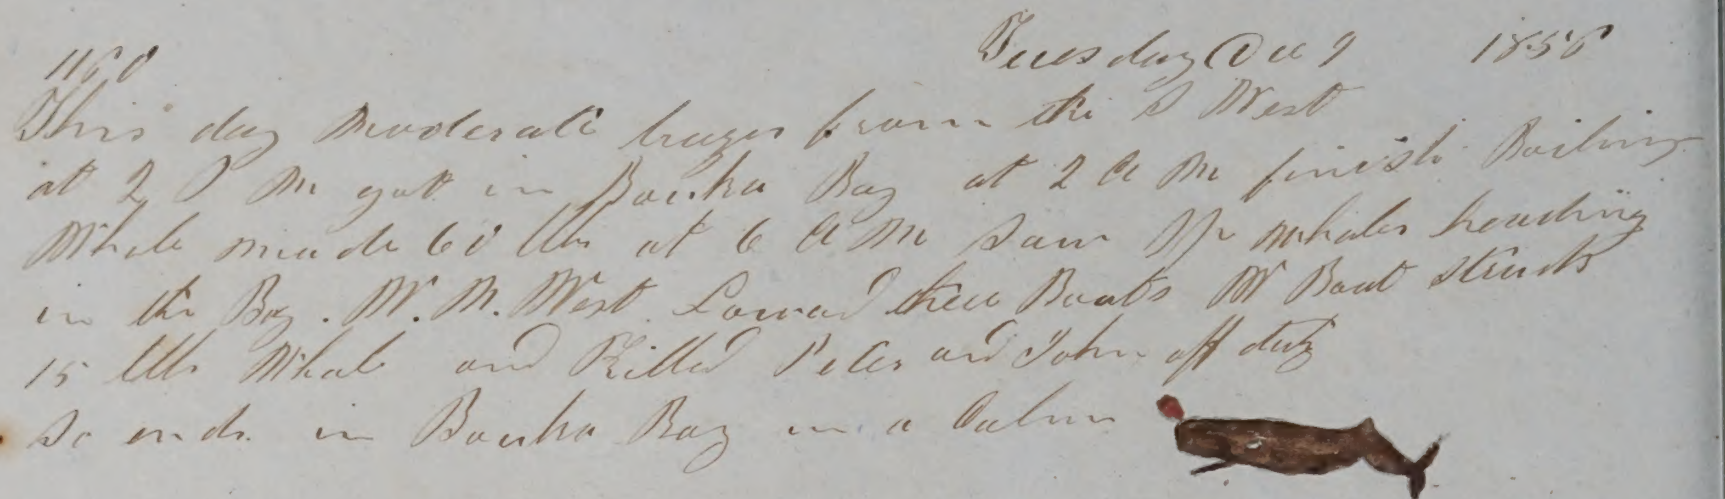 1160 Tuesday Dec 9 1856
This day moderate brezes from the S West
at 2 P M got in Bouka Bay at 2 A M finish Boiling
Whale made 60 bbls at 6 A M saw Sp whales heading
in the Bay. W. N. West. Lowerd three Boats W Boat struck
15 bbls Whale and Killed Peter and John off duty
So ends in Bouka Bay in a Calm